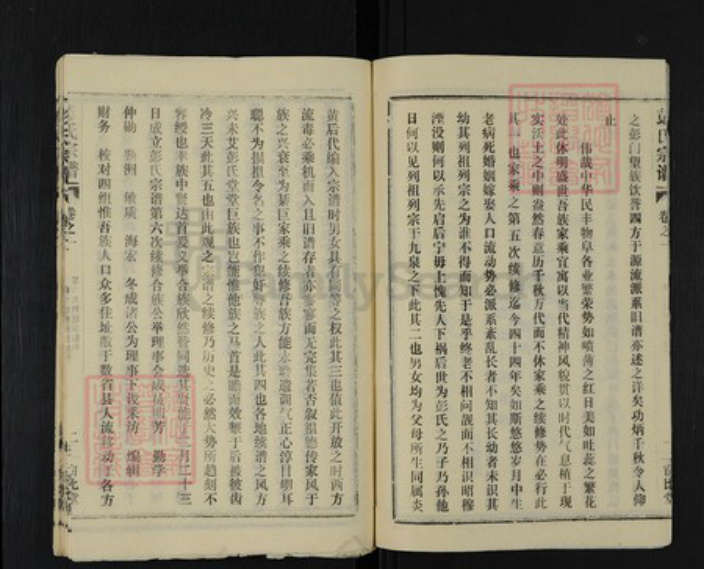 彭氏宗谱
卷之一
之彭门望族饮誉四方于源流派系旧谱亦述之详矣功炳千秋令人仰
止
伟哉中华民丰物阜各业繁荣势如喷薄之红日美如吐蕊之繁花
处此休明盛世吾族家乘官寓以当代精神风貌贯以时代气息植于现
实沃土之中则盎然春意历千秋万代而不休家乘之续修势在必行此
其一也家乘之第五次续修迄今四十四年矣如斯悠悠岁月中生
老病死婚姻嫁娶人口流动势必派系紊乱长者不知其长幼者未识其
幼其列祖列宗之为谁不得而知于是乎终老不相问觌面不相识昭穆
湮没则何以承先启后宁毋上愧先人下祸后世为彭氏之乃子乃孙他
日何以见列祖列宗于九泉之下此其二也男女均为父母所生同属炎
黄后代编入宗谱时男女具有同等之权此其三也值此开放之时西方
流毒必乘机而入且旧谱存者亦寥寥而无完集若否叙祖德传家风于
族之兴衰至为綦巨家乘之续修吾族方能永继遗训气正心淳目明耳
聪不为损祖令名之事不作犯奸 族之人此其四也各地续谱之风方
兴未艾彭氏堂堂巨族也岂能惟他族之马首是瞻而效颦于后滋彼齿
冷三天此其五也由此观之宗谱之续修乃历史之必然大势所趋刻不
容缓也本族中贤达首爰义举合族欣然赞同 二月二十三
日成立彭氏宗谱第六次续修合族公举理事会成员 芳 勤学
仲勋 洲 敏 海宏 冬成诸公为理事下设采访 编辑
财务 校对四组惟吾族人口众多住址散于数省县人流移动于各方
彭氏宗谱
卷之一